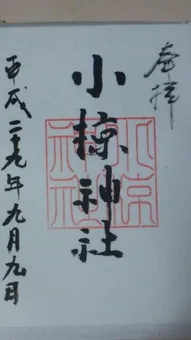 奉拝
小椋神社
平成二十九年九月九日